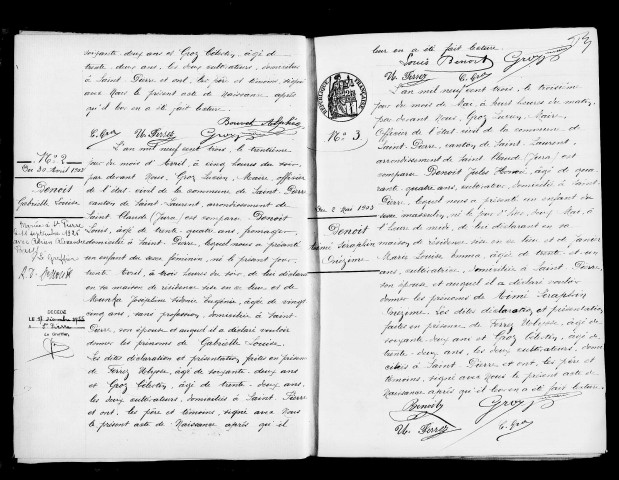 soixante deux ans et Groz Célestin, âgé de
trente deux ans, les deux cultivateurs, domiciliés
à Saint Pierre et ont, les père et témoins, signé
avec Nous le présent acte de Naissance, après
qu'il leur en a été fait lecture.
Bouvet Alphée
C. Groz U. Ferrez Groz
N° 2
Du 30 Avril 1903
Benoit
Gabrielle Louise
Mariée à St Pierre
le 11 septembre 1926
avec
Le Greffier
DÉCÉDÉ
LE 27 décembre 1966
à St Pierre
L'an mil neuf cent trois, le trentième
jour du mois d'Avril à cinq heures du soir
par devant Nous, Groz Lucien, Maire, officier
de l'état civil de la commune de Saint Pierre
canton de Saint Laurent, arrondissement de
Saint Claude (Jura) est comparu Benoit
Louis, âgé de trente quatre ans, fromager,
domicilié à Saint Pierre, lequel nous a présenté
un enfant du sexe féminin, né le présent jour
trente Avril, à trois heures du soir, de lui déclarant
en sa maison de résidence sise en ce lieu, et de
Joséphine Sidonie Eugénie, âgée de vingt
cinq ans, sans profession, domiciliée à Saint
Pierre, son épouse et auquel il a déclaré vouloir
donner les prénoms de Gabrielle Louise.
Les dites déclaration et présentation faites en présence
de Ferrez Ulysse, âgé de soixante deux ans
et Groz Célestin, âgé de trente deux ans,
les deux cultivateurs, domiciliés à Saint Pierre
et ont, les père et témoins, signé avec Nous
le présent acte de Naissance après qu'il
leur en a été fait lecture.
Louis Benoit Groz
U. Ferrez C. Groz
RÉPUBLIQUE FRANÇAISE
N° 3
Du 2 Mai 1903
Benoit
Aimé Séraphin
Onézime
L'an mil neuf cent trois, le troisième
jour du mois de Mai, à huit heures du matin,
par devant Nous, Groz Lucien, Maire,
Officier de l'état civil de la commune de
Saint Pierre, canton de Saint Laurent,
arrondissement de Saint Claude (Jura) est
comparu Benoit Jules Honoré, âgé de qua-
rante quatre ans, cultivateur, domicilié à Saint
Pierre, lequel nous a présenté un enfant du
sexe masculin, né le jour d'hier, deux Mai, à
heure de midi, de lui déclarant en sa
maison de résidence sise en ce lieu et de
Marie Louise Emma, âgée de trente et un
ans, cultivatrice, domiciliée à Saint Pierre,
son épouse et auquel il a déclaré vouloir
donner les prénoms de Aimé Séraphin
Onézime. Les dites déclaration et présentation
faites en présence de Ferrez Ulysse, âgé de
soixante deux ans et Groz Célestin, âgé de
trente deux ans, les deux cultivateurs, domi-
ciliés à Saint Pierre et ont, les père et
témoins, signé avec Nous le présent acte de
Naissance après qu'il leur en a été fait lecture.
Benoit Groz
U. Ferrez C. Groz